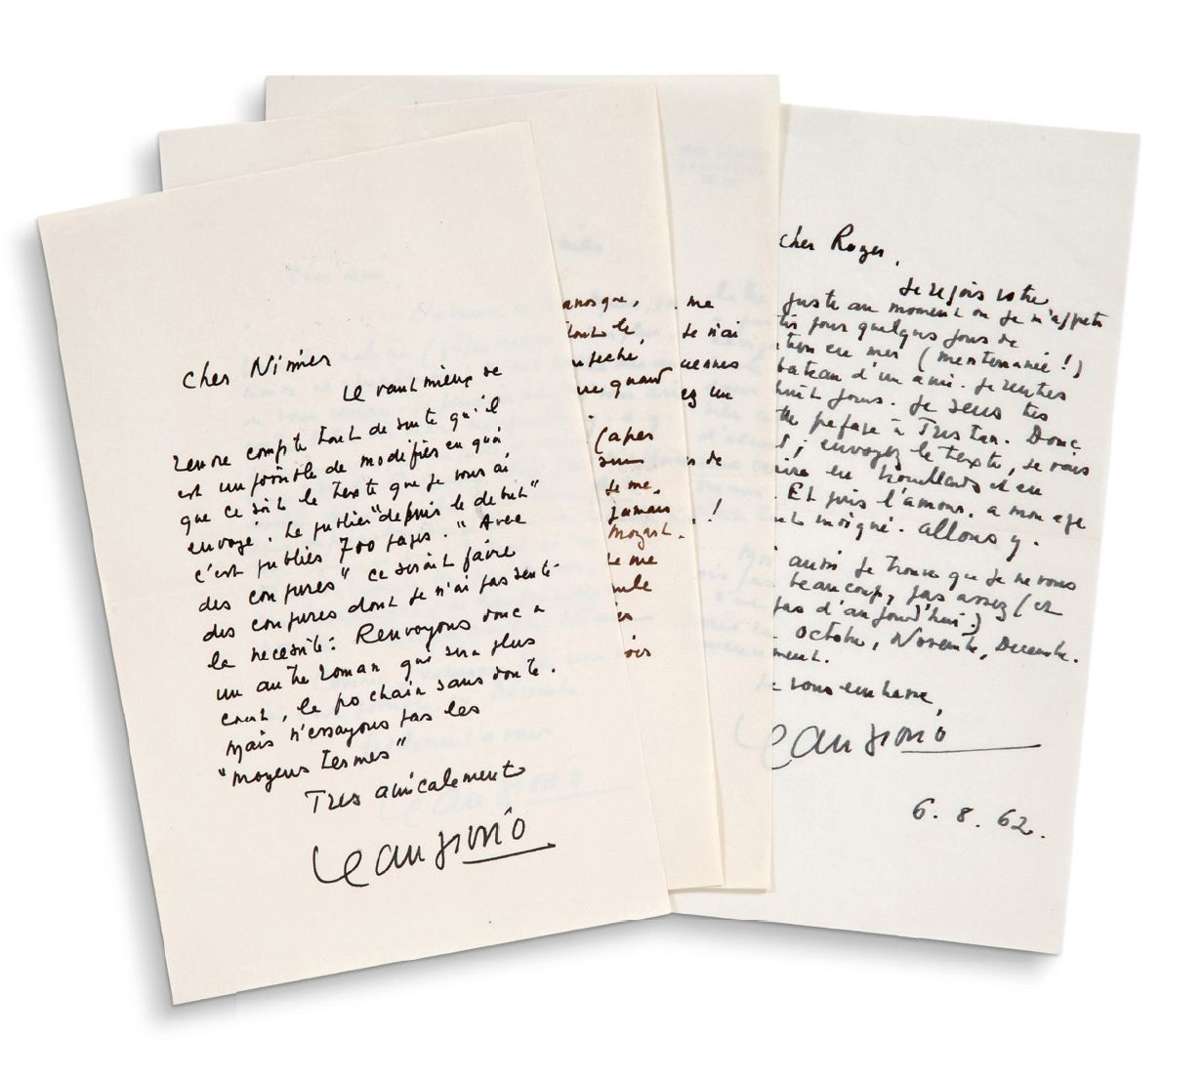 Cher Nimier
Il vaut mieux se
rendre compte tout de suite qu'il
est impossible de modifier en quoi
que ce soit le texte que je vous ai
envoyé. Le publier "depuis le début"
c'est publier 700 pages. "Avec
des coupures" ce serait faire
des coupures dont je n'ai pas senti
la necésité : Renvoyons donc a
un autre roman qui sera plus
court, le prochain sans doute.
Mais n'essayons pas les
"moyens termes"
Tres amicalement
Jean Giono
anosque,
dont le
quand
.
(apres
sur
je me,
jamais
Mozart.
je me
oir
. me
je n'ai
ez un
s de
. !
cher Roger,
Je reçois votre
juste au moment ou je m'apprete
tir pour quelques jours de
tion en mer (mediterranée !)
bateau d'un ami. Je rentre
huit jours. Je serai tres
preface à Tristan. Donc
; envoyez le texte, je vais
ire en brouillard et en
. Et puis l'amour, a mon age
. allons y.
aussi je trouve que je ne vous
beaucoup, pas assez (et
pas d'aujourd'hui.)
octobre, Novembre, Decembre.
ment.
je vous embrasse,
Jean Giono
6. 8. 62.